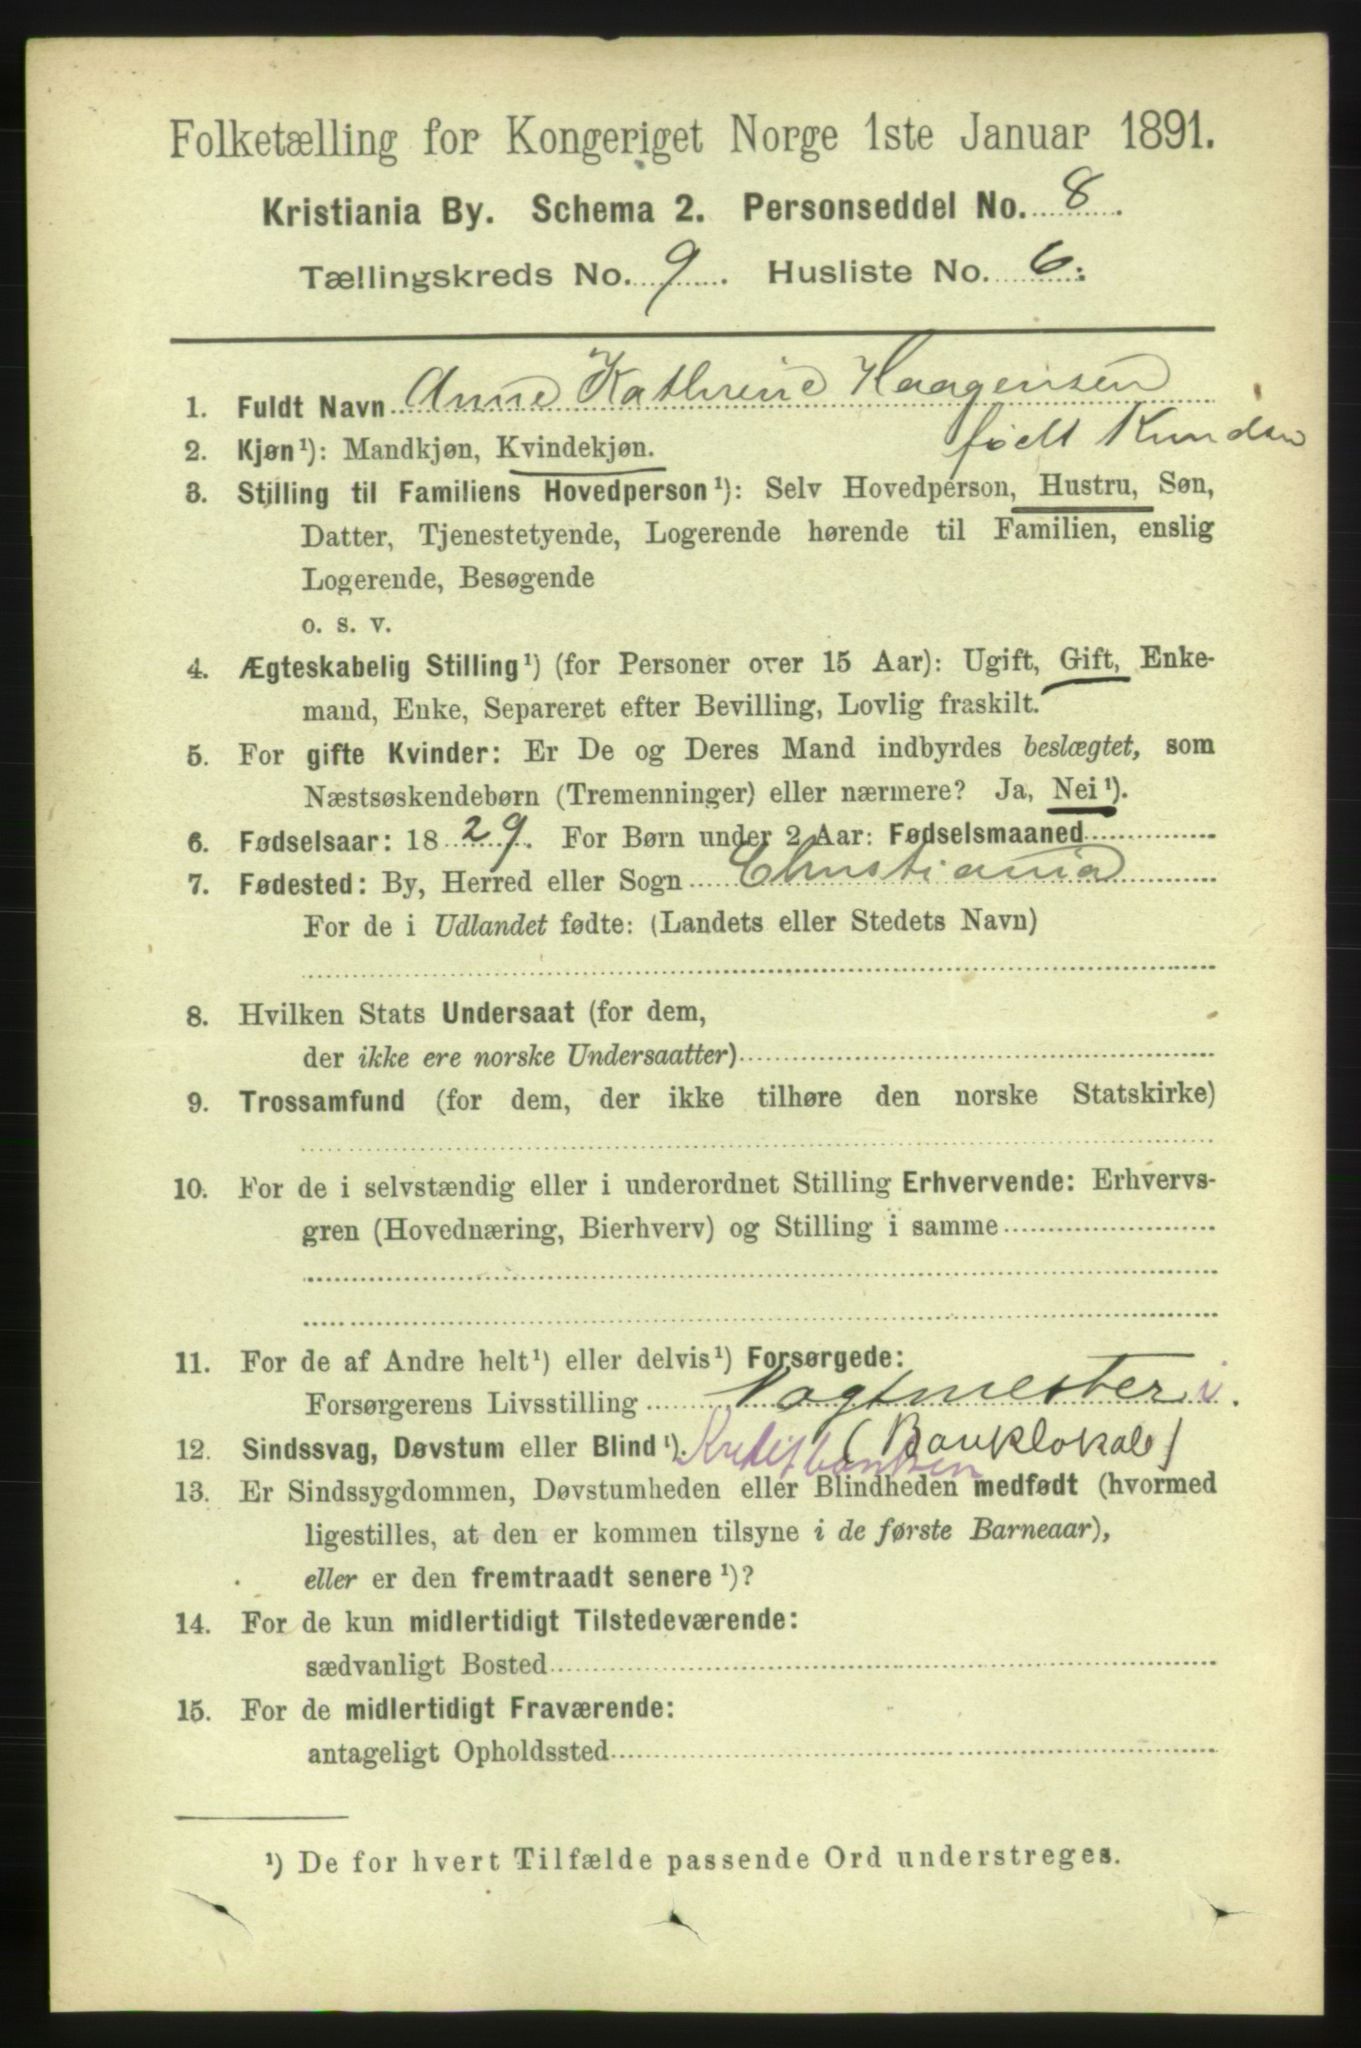 Folketælling for Kongeriget Norge 1ste Januar 1891.
Kristiania By. Schema 2. Personseddel No. 8.
Tællingskreds No. 9. Husliste No. 6.
1. Fuldt Navn Anne Kathrine Haagensen
født Knudsen
2. Kjøn¹): Mandkjøn, Kvindekjøn.
3. Stilling til Familiens Hovedperson¹): Selv Hovedperson, Hustru, Søn,
Datter, Tjenestetyende, Logerende hørende til Familien, enslig
Logerende, Besøgende
o. s. v.
4. Ægteskabelig Stilling¹) (for Personer over 15 Aar): Ugift, Gift, Enke-
mand, Enke, Separeret efter Bevilling, Lovlig fraskilt.
5. For gifte Kvinder: Er De og Deres Mand indbyrdes beslægtet, som
Næstsøskendebørn (Tremenninger) eller nærmere? Ja, Nei¹).
6. Fødselsaar: 1829. For Børn under 2 Aar: Fødselsmaaned
7. Fødested: By, Herred eller Sogn Christiania
For de i Udlandet fødte: (Landets eller Stedets Navn)
8. Hvilken Stats Undersaat (for dem,
der ikke ere norske Undersaatter)
9. Trossamfund (for dem, der ikke tilhøre den norske Statskirke)
10. For de i selvstændig eller i underordnet Stilling Erhvervende: Erhvervs-
gren (Hovednæring, Bierhverv) og Stilling i samme
11. For de af Andre helt¹) eller delvis¹) Forsørgede:
Forsørgerens Livsstilling Vagtmester i
12. Sindssvag, Døvstum eller Blind¹). (Banklokale)
Kreditbanken
13. Er Sindssygdommen, Døvstumheden eller Blindheden medfødt (hvormed
ligestilles, at den er kommen tilsyne i de første Barneaar),
eller er den fremtraadt senere¹)?
14. For de kun midlertidigt Tilstedeværende:
sædvanligt Bosted
15. For de midlertidigt Fraværende:
antageligt Opholdssted
¹) De for hvert Tilfælde passende Ord understreges.